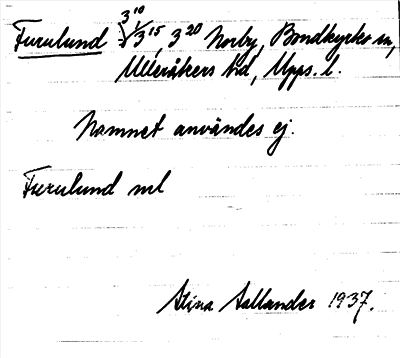 3¹⁰
Furulund 3¹⁵, 3²⁰ Norby, Bondkyrko sn,
Ulleråkers hd, Upps. l.
Namnet användes ej.
Furulund ml
Stina Sallander 1937.